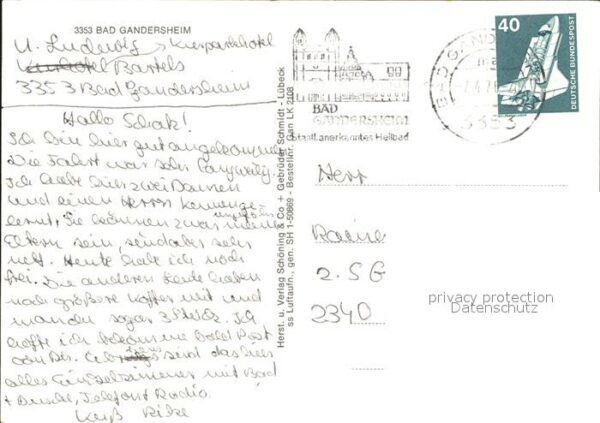 3353 BAD GANDERSHEIM
U. Ludewig Kurparkhotel
Bartels
3353 Bad Gandersheim
Hallo Schatz!
Ich bin hier gut angekommen.
Die Fahrt war sehr langweilig.
Ich habe hier zwei Damen
und einen Herrn kennenge
lernt. Sie können zwar meine
Eltern sein, sind aber sehr
nett. Heute habe ich noch
frei. Die anderen Leute haben
noch größere Koffer mit und
sogar 3 Stück. Ich
hoffe ich bekomme bald Post
von Dir. sind das hier
alles Einzelzimmer mit Bad
+ Dusche, Telefon + Radio.
Kuß
Herst. u. Verlag Schöning & Co + Gebrüder Schmidt - Lübeck
ss Luftaufn., gen. SH 1-50869 - Bestellnr. Gan LK 2108
BAD
GANDERSHEIM
Staatl. anerkanntes Heilbad
3353
40
DEUTSCHE BUNDESPOST
Herr
2. SG
2340
privacy protection
Datenschutz